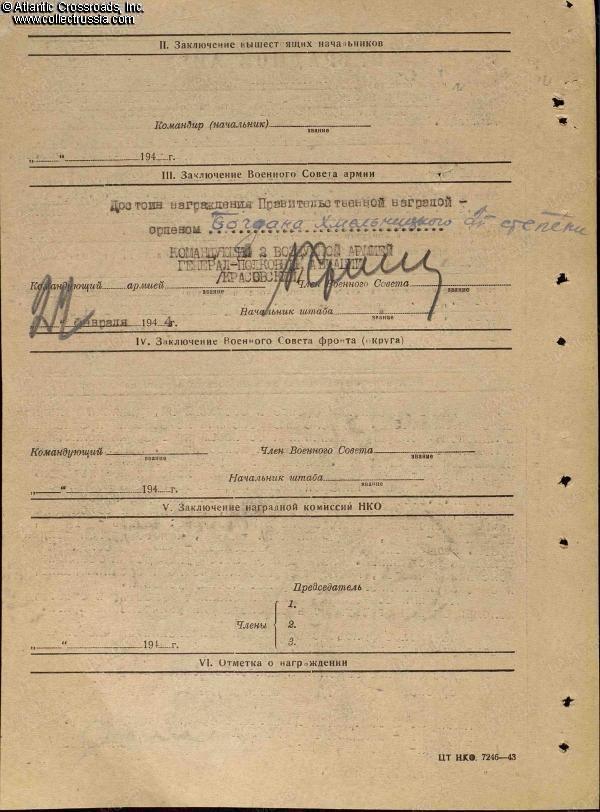 © Atlantic Crossroads, Inc.
www.collectrussia.com
II. Заключение вышест ящих начальников
Командир (начальник)
звание
„ “ 194 г.
III. Заключение Военного Совета армии
Достоин награждения Правительственной наградой –
орденом Богдана Хмельницкого степени
КОМАНДУЮЩИЙ 2 ВОЗДУШНОЙ АРМИЕЙ
ГЕНЕРАЛ-ПОЛКОВНИК АВИАЦИИ
/КРАСОВСКИЙ/
Командующий армией Член Военного Совета
звание звание
Начальник штаба
звание
22 “ февраля 1944 г.
IV. Заключение Военного Совета фронта (округа)
Командующий Член Военного Совета
звание звание
Начальник штаба
звание
„ “ 194 г.
V. Заключение наградной комиссий НКО
Председатель
1.
Члены 2.
3.
„ “ 194 г.
VI. Отметка о награждении
ЦТ НКО. 7246—43